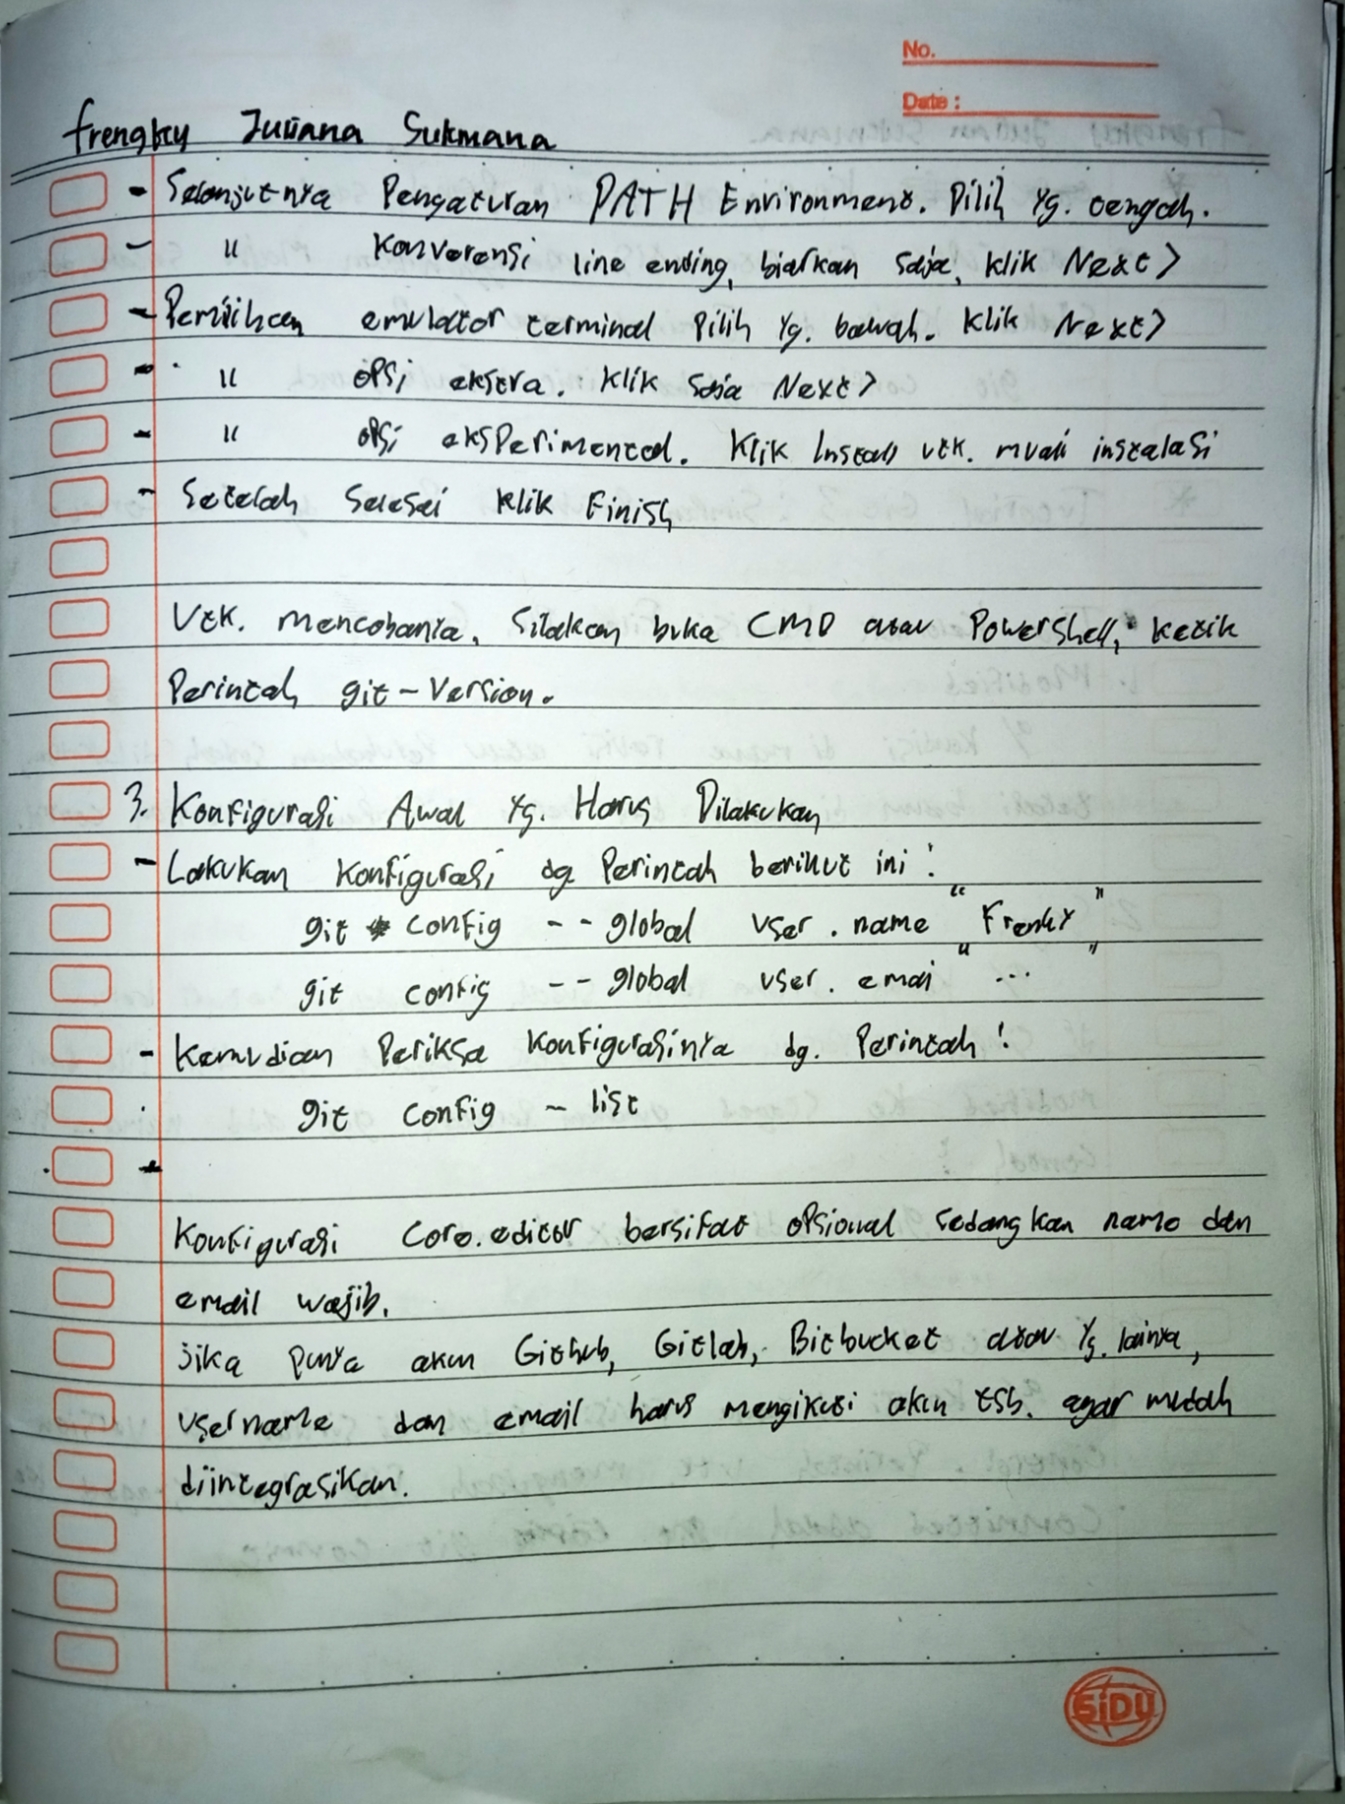 No.
Date :
Frengky Juliana Sukmana
- Selanjutnya Pengaturan PATH Environment. Pilih yg. tengah.
- " Konverensi line ending, biarkan saja, klik Next >
- Pemilihan emulator terminal Pilih yg. bawah. Klik Next >
- " opsi ekstra. Klik saja Next >
- " opsi eksperimental. Klik Install utk. mulai instalasi
- Setelah selesai klik Finish
Utk. mencobanya, silakan buka CMD atau Powershell, ketik
Perintah git - version.
3. Konfigurasi Awal yg. Harus Dilakukan
- Lakukan konfigurasi dg Perintah berikut ini :
git config -- global user . name " Frenky "
git config -- global user . emai " ... "
- Kemudian Periksa Konfigurasinya dg. Perintah :
git config - list
Konfigurasi Core.editor bersifat opsional sedangkan name dan
email wajib.
Jika punya akun Github, Gitlab, Bitbucket atau yg. lainya,
username dan email harus mengikuti akun tsb. agar mudah
diintegrasikan.
SiDU